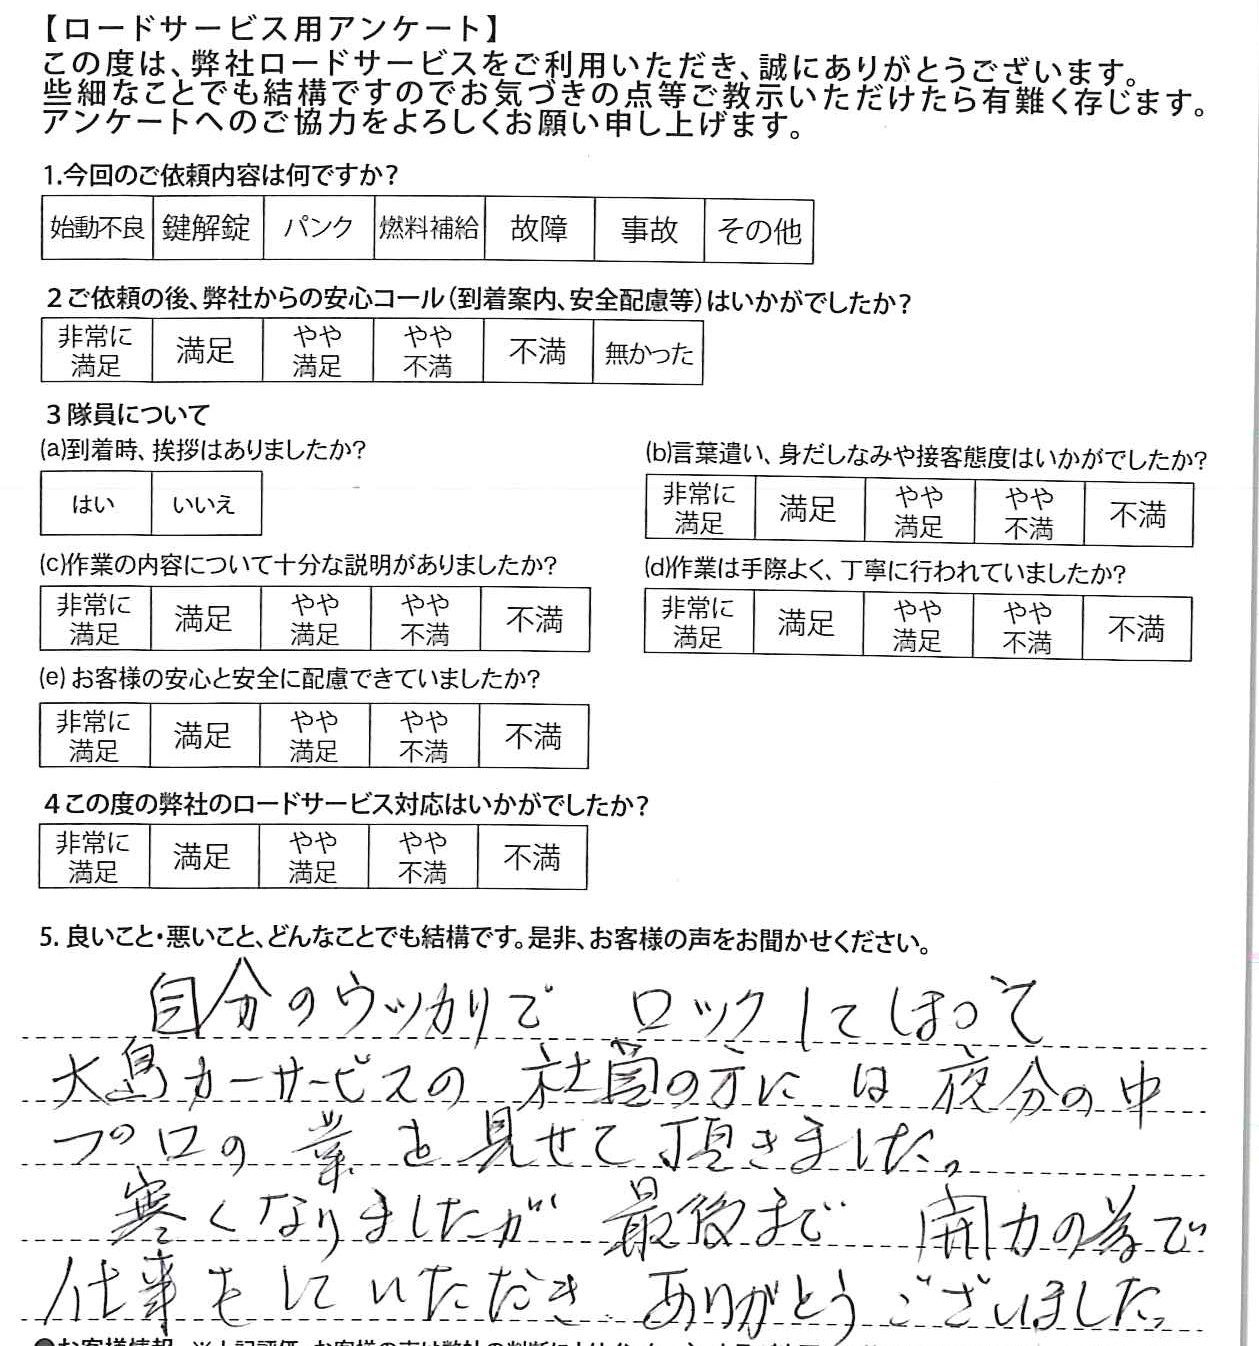 【ロードサービス用アンケート】
この度は、弊社ロードサービスをご利用いただき、誠にありがとうございます。
些細なことでも結構ですのでお気づきの点等ご教示いただけたら有難く存じます。
アンケートへのご協力をよろしくお願い申し上げます。
1.今回のご依頼内容は何ですか?
始動不良 鍵解錠 パンク 燃料補給 故障 事故 その他
2ご依頼の後、弊社からの安心コール(到着案内、安全配慮等)はいかがでしたか?
非常に満足 満足 やや満足 やや不満 不満 無かった
3隊員について
(a)到着時、挨拶はありましたか?
はい いいえ
(b)言葉遣い、身だしなみや接客態度はいかがでしたか?
非常に満足 満足 やや満足 やや不満 不満
(c)作業の内容について十分な説明がありましたか?
非常に満足 満足 やや満足 やや不満 不満
(d)作業は手際よく、丁寧に行われていましたか?
非常に満足 満足 やや満足 やや不満 不満
(e)お客様の安心と安全に配慮できていましたか?
非常に満足 満足 やや満足 やや不満 不満
4この度の弊社のロードサービス対応はいかがでしたか?
非常に満足 満足 やや満足 やや不満 不満
5. 良いこと・悪いこと、どんなことでも結構です。是非、お客様の声をお聞かせください。
自分のウッカリで ロックしてしまって
大島カーサービスの 社員の方に は 夜分の中
プロの 業 を 見せて 頂きました。
寒くなりましたが 最後まで 力の で
仕事をしていただき ありがとうございました。